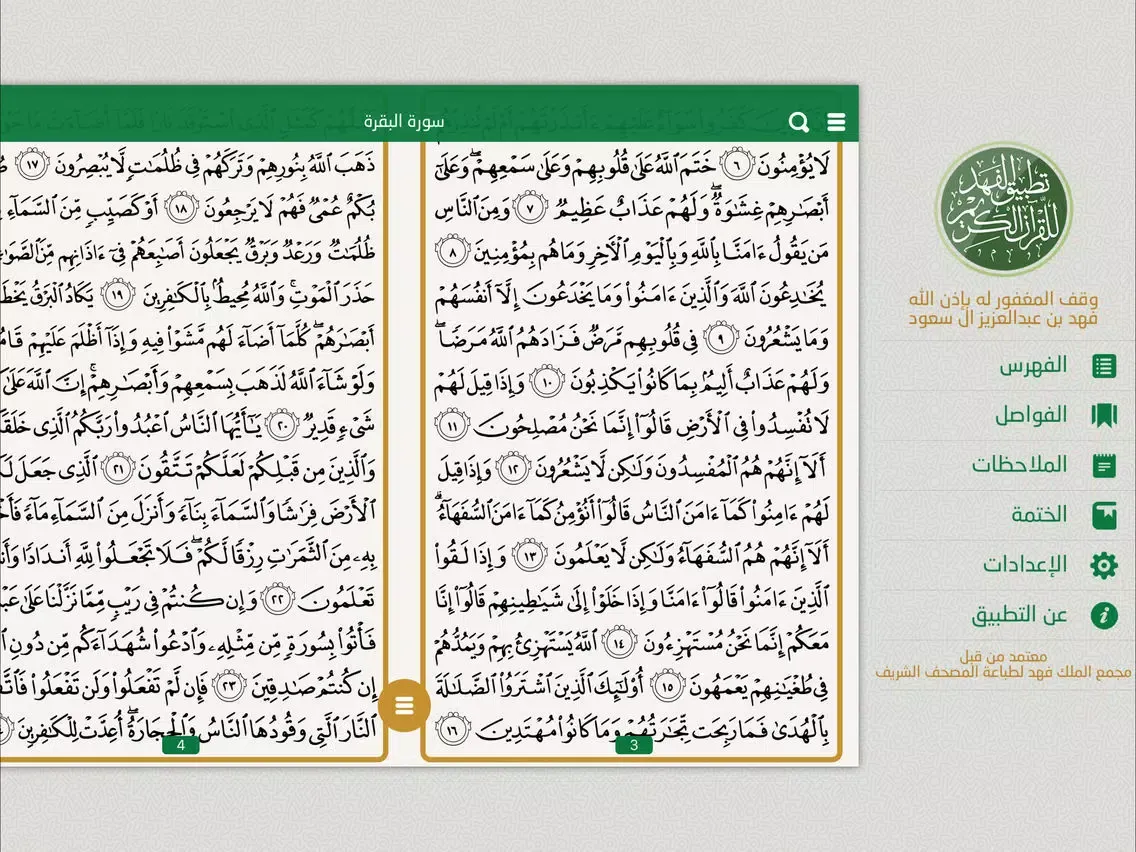 تطبيق الفهد
للقرآن الكريم
وقف المغفور له بإذن الله
فهد بن عبدالعزيز آل سعود
الفهرس
الفواصل
الملاحظات
الختمة
الإعدادات
عن التطبيق
معتمد من قبل
مجمع الملك فهد لطباعة المصحف الشريف
سورة البقرة
لَا يُؤْمِنُونَ ٦ خَتَمَ ٱللَّهُ عَلَىٰ قُلُوبِهِمْ وَعَلَىٰ سَمْعِهِمْۖ وَعَلَىٰٓ
أَبْصَٰرِهِمْ غِشَٰوَةٌۖ وَلَهُمْ عَذَابٌ عَظِيمٌ ٧ وَمِنَ ٱلنَّاسِ
مَن يَقُولُ ءَامَنَّا بِٱللَّهِ وَبِٱلْيَوْمِ ٱلْأٓخِرِ وَمَا هُم بِمُؤْمِنِينَ ٨
يُخَٰدِعُونَ ٱللَّهَ وَٱلَّذِينَ ءَامَنُوا۟ وَمَا يَخْدَعُونَ إِلَّآ أَنفُسَهُمْ
وَمَا يَشْعُرُونَ ٩ فِى قُلُوبِهِم مَّرَضٌ فَزَادَهُمُ ٱللَّهُ مَرَضًاۖ
وَلَهُمْ عَذَابٌ أَلِيمٌۢ بِمَا كَانُوا۟ يَكْذِبُونَ ١٠ وَإِذَا قِيلَ لَهُمْ
لَا تُفْسِدُوا۟ فِى ٱلْأَرْضِ قَالُوٓا۟ إِنَّمَا نَحْنُ مُصْلِحُونَ ١١
أَلَآ إِنَّهُمْ هُمُ ٱلْمُفْسِدُونَ وَلَٰكِن لَّا يَشْعُرُونَ ١٢ وَإِذَا قِيلَ
لَهُمْ ءَامِنُوا۟ كَمَآ ءَامَنَ ٱلنَّاسُ قَالُوٓا۟ أَنُؤْمِنُ كَمَآ ءَامَنَ ٱلسُّفَهَآءُۗ
أَلَآ إِنَّهُمْ هُمُ ٱلسُّفَهَآءُ وَلَٰكِن لَّا يَعْلَمُونَ ١٣ وَإِذَا لَقُوا۟
ٱلَّذِينَ ءَامَنُوا۟ قَالُوٓا۟ ءَامَنَّا وَإِذَا خَلَوْا۟ إِلَىٰ شَيَٰطِينِهِمْ قَالُوٓا۟ إِنَّا
مَعَكُمْ إِنَّمَا نَحْنُ مُسْتَهْزِءُونَ ١٤ ٱللَّهُ يَسْتَهْزِئُ بِهِمْ وَيَمُدُّهُمْ
فِى طُغْيَٰنِهِمْ يَعْمَهُونَ ١٥ أُو۟لَٰٓئِكَ ٱلَّذِينَ ٱشْتَرَوُا۟ ٱلضَّلَٰلَةَ
بِٱلْهُدَىٰ فَمَا رَبِحَت تِّجَٰرَتُهُمْ وَمَا كَانُوا۟ مُهْتَدِينَ ١٦
3
ذَهَبَ ٱللَّهُ بِنُورِهِمْ وَتَرَكَهُمْ فِى ظُلُمَٰتٍ لَّا يُبْصِرُونَ ١٧
بُكْمٌ عُمْىٌ فَهُمْ لَا يَرْجِعُونَ ١٨ أَوْ كَصَيِّبٍ مِّنَ ٱلسَّمَآءِ
ظُلُمَٰتٌ وَرَعْدٌ وَبَرْقٌ يَجْعَلُونَ أَصَٰبِعَهُمْ فِىٓ ءَاذَانِهِم مِّنَ
حَذَرَ ٱلْمَوْتِۚ وَٱللَّهُ مُحِيطٌۢ بِٱلْكَٰفِرِينَ ١٩ يَكَادُ ٱلْبَرْقُ
أَبْصَٰرَهُمْۖ كُلَّمَآ أَضَآءَ لَهُم مَّشَوْا۟ فِيهِ وَإِذَآ أَظْلَمَ عَلَيْهِمْ
وَلَوْ شَآءَ ٱللَّهُ لَذَهَبَ بِسَمْعِهِمْ وَأَبْصَٰرِهِمْۚ إِنَّ ٱللَّهَ عَلَىٰ
شَىْءٍ قَدِيرٌ ٢٠ يَٰٓأَيُّهَا ٱلنَّاسُ ٱعْبُدُوا۟ رَبَّكُمُ ٱلَّذِى
وَٱلَّذِينَ مِن قَبْلِكُمْ لَعَلَّكُمْ تَتَّقُونَ ٢١ ٱلَّذِى جَعَلَ
ٱلْأَرْضَ فِرَٰشًا وَٱلسَّمَآءَ بِنَآءً وَأَنزَلَ مِنَ ٱلسَّمَآءِ مَآءً
بِهِۦ مِنَ ٱلثَّمَرَٰتِ رِزْقًا لَّكُمْۖ فَلَا تَجْعَلُوا۟ لِلَّهِ أَندَادًا
تَعْلَمُونَ ٢٢ وَإِن كُنتُمْ فِى رَيْبٍ مِّمَّا نَزَّلْنَا عَلَىٰ
فَأْتُوا۟ بِسُورَةٍ مِّن مِّثْلِهِۦ وَٱدْعُوا۟ شُهَدَآءَكُم مِّن دُونِ
إِن كُنتُمْ صَٰدِقِينَ ٢٣ فَإِن لَّمْ تَفْعَلُوا۟ وَلَن تَفْعَلُوا۟
ٱلنَّارَ ٱلَّتِى وَقُودُهَا ٱلنَّاسُ وَٱلْحِجَارَةُۖ أُعِدَّتْ لِلْكَٰفِرِينَ
4